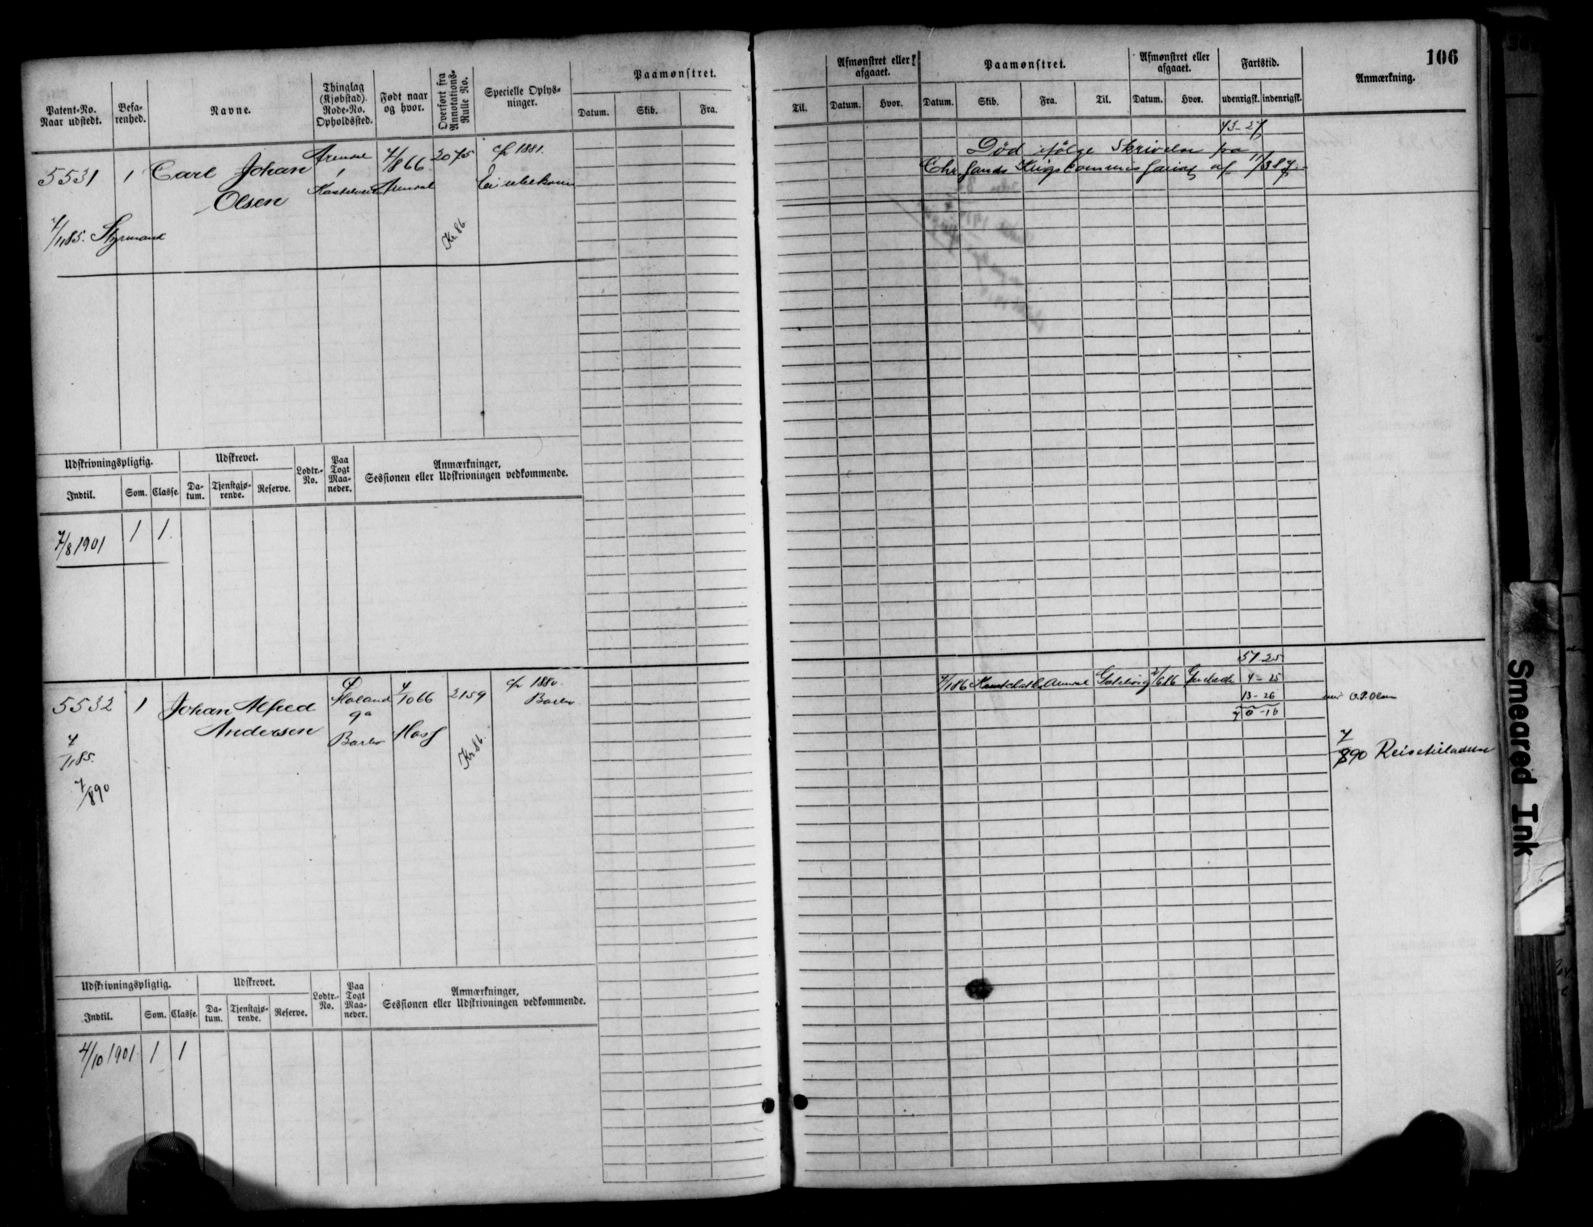 106
Patent-No. Naar udstedt.
Befarenhed.
Navne.
Thinglag (Kjøbstad) Rode-No. Opholdssted.
Født naar og hvor.
Overført fra Annotations-Rulle No.
Specielle Oplysninger.
Paamønstret.
Datum. Skib. Fra.
Til.
Afmønstret eller afgaaet.
Datum. Hvor.
Paamønstret.
Datum. Skib. Fra. Til.
Afmønstret eller afgaaet.
Datum. Hvor.
Fartstid.
udenrigsk. indenrigsk.
Anmærkning.
5531 1 Carl Johan Olsen
Arendal 1
4/8 66 Arendal
2075
Kr. 86
1881.
4/1 85. Styrmand
43-27
Død ifølge Skrivelse fra
Chr.sands
Udskrivningspligtig.
Udskrevet.
Lodtr.-No.
Paa Togt Maaneder.
Anmærkninger, Sessionen eller Udskrivningen vedkommende.
Indtil. Som. Classe. Datum. Tjenstgjørende. Reserve.
7/8 1901 1 1.
5532 1 Johan Alfred Andersen
Barbo
2159
Kr. 86.
1880.
Barbo
4/1 85.
7/8 90
51 25
4-25
13-26
70-16
7/8 90
Udskrivningspligtig.
Udskrevet.
Lodtr.-No.
Paa Togt Maaneder.
Anmærkninger, Sessionen eller Udskrivningen vedkommende.
Indtil. Som. Classe. Datum. Tjenstgjørende. Reserve.
4/10 1901 1 1
Smeared Ink